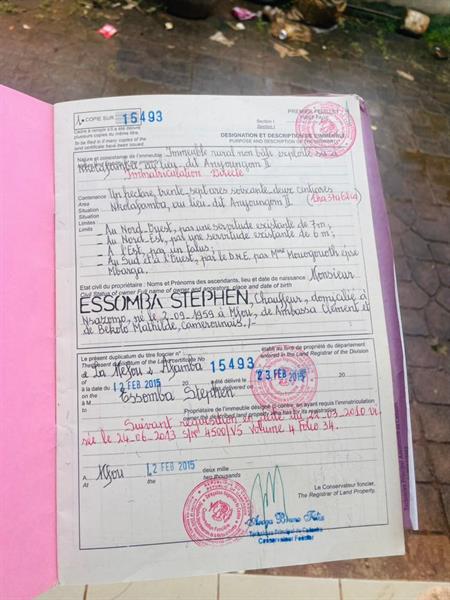 1e COPIE SUR 15493
Cadre à remplir s'il a été délivré
plusieurs copies du même titre.
To be filed in if many copies of the
land certificate have been issued
PREMIER FEUILLET
FIRST PAGE
Section I
Section I
DESIGNATION ET DESCRIPTION DE L'IMMEUBLE
PURPOSE AND DESCRIPTION OF THE PROPERTY
Nature et consistance de l'immeuble Immeuble rural non bâti exploité sis à
Nkolafamba, au lieu dit Anyoungom II
Immatriculation Directe
Contenance Un hectare, trente sept ares soixante deux centiares
Area
Situation Nkolafamba, au lieu dit Anyoungom II (1ha37a62ca)
Situation
Limites
Limits
- Au Nord-Ouest, par une servitude existante de 7m;
- Au Nord-Est, par une servitude existante de 6m;
- A l'Est, par un talus;
- Au Sud et à l'Ouest, par le D.N.E, par Mme épse
Mbarga.
Etat civil du propriétaire : Noms et Prénoms des ascendants, lieu et date de naissance Monsieur
Civil Status of owner Full name of owner and ancestors, place and date of birth
ESSOMBA STEPHEN, Chauffeur, domicilié à
Nsazomo, né le 2.09.1959 à Mfou, de Ambassa Clément et
de Bekolo Mathilde, Camerounais./-
Le présent duplicatum du titre foncier n° 15493 établi au livre de propriété du département
The present duplicatum of the Land certificate No entered in the Land Registrar of the Division
de La Mefou & Afamba
à la date du 12 FEB 2015 a été délivré le 23 FEB 2015
à M Essomba Stephen
Propriétaire de l'immeuble désigné ci-contre, en ayant requis l'immatriculation
Suivant réquisition en date du 22.03.2010 vi-
sée le 24.06.2013 s/n° 4500/V5 Volume 4 Folio 34.
A Mfou 12 FEB 2015 deux mille
At two thousand
Le Conservateur foncier,
The Registrar of Land Property,
Conservateur Foncier